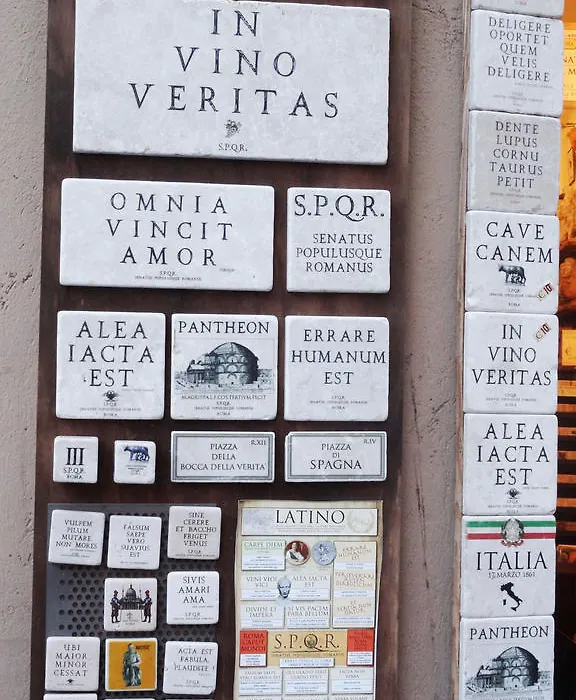 IN
VINO
VERITAS
S.P.Q.R.
OMNIA
VINCIT
AMOR
S.P.Q.R.
SENATUS POPULUSQUE ROMANUS
S.P.Q.R.
SENATUS
POPULUSQUE
ROMANUS
ALEA
IACTA
EST
S.P.Q.R.
SENATUS POPULUSQUE ROMANUS
ROMA
PANTHEON
M·AGRIPPA·L·F·COS·TERTIVM·FECIT
S.P.Q.R.
SENATUS POPULUSQUE ROMANUS
ROMA
ERRARE
HUMANUM
EST
S.P.Q.R.
SENATUS POPULUSQUE ROMANUS
ROMA
III
S.P.Q.R.
ROMA
R.XII
PIAZZA
DELLA
BOCCA DELLA VERITA'
R.IV
PIAZZA
DI
SPAGNA
VULPEM
PILUM
MUTARE
NON MORES
FALSUM
SAEPE
VERO
SUAVIUS
EST
SINE
CERERE
ET BACCHO
FRIGET
VENUS
SIVIS
AMARI
AMA
S.P.Q.R.
UBI
MAIOR
MINOR
CESSAT
ACTA EST
FABULA,
PLAUDITE
LATINO
CARPE DIEM
ERRARE
HUMANUM
EST
VENI VIDI
VICI
ALEA IACTA
EST
DIVIDE ET
IMPERA
SI VIS PACEM
PARA BELLUM
ROMA
CAPUT
MUNDI
S.P.Q.R.
SENATUS POPULUSQUE ROMANUS
DELIGERE
OPORTET
QUEM
VELIS
DELIGERE
S.P.Q.R.
DENTE
LUPUS
CORNU
TAURUS
PETIT
S.P.Q.R.
CAVE
CANEM
S.P.Q.R.
ROMA
€10
IN
VINO
VERITAS
S.P.Q.R.
ROMA
€10
ALEA
IACTA
EST
S.P.Q.R.
ROMA
ITALIA
17 MARZO 1861
PANTHEON